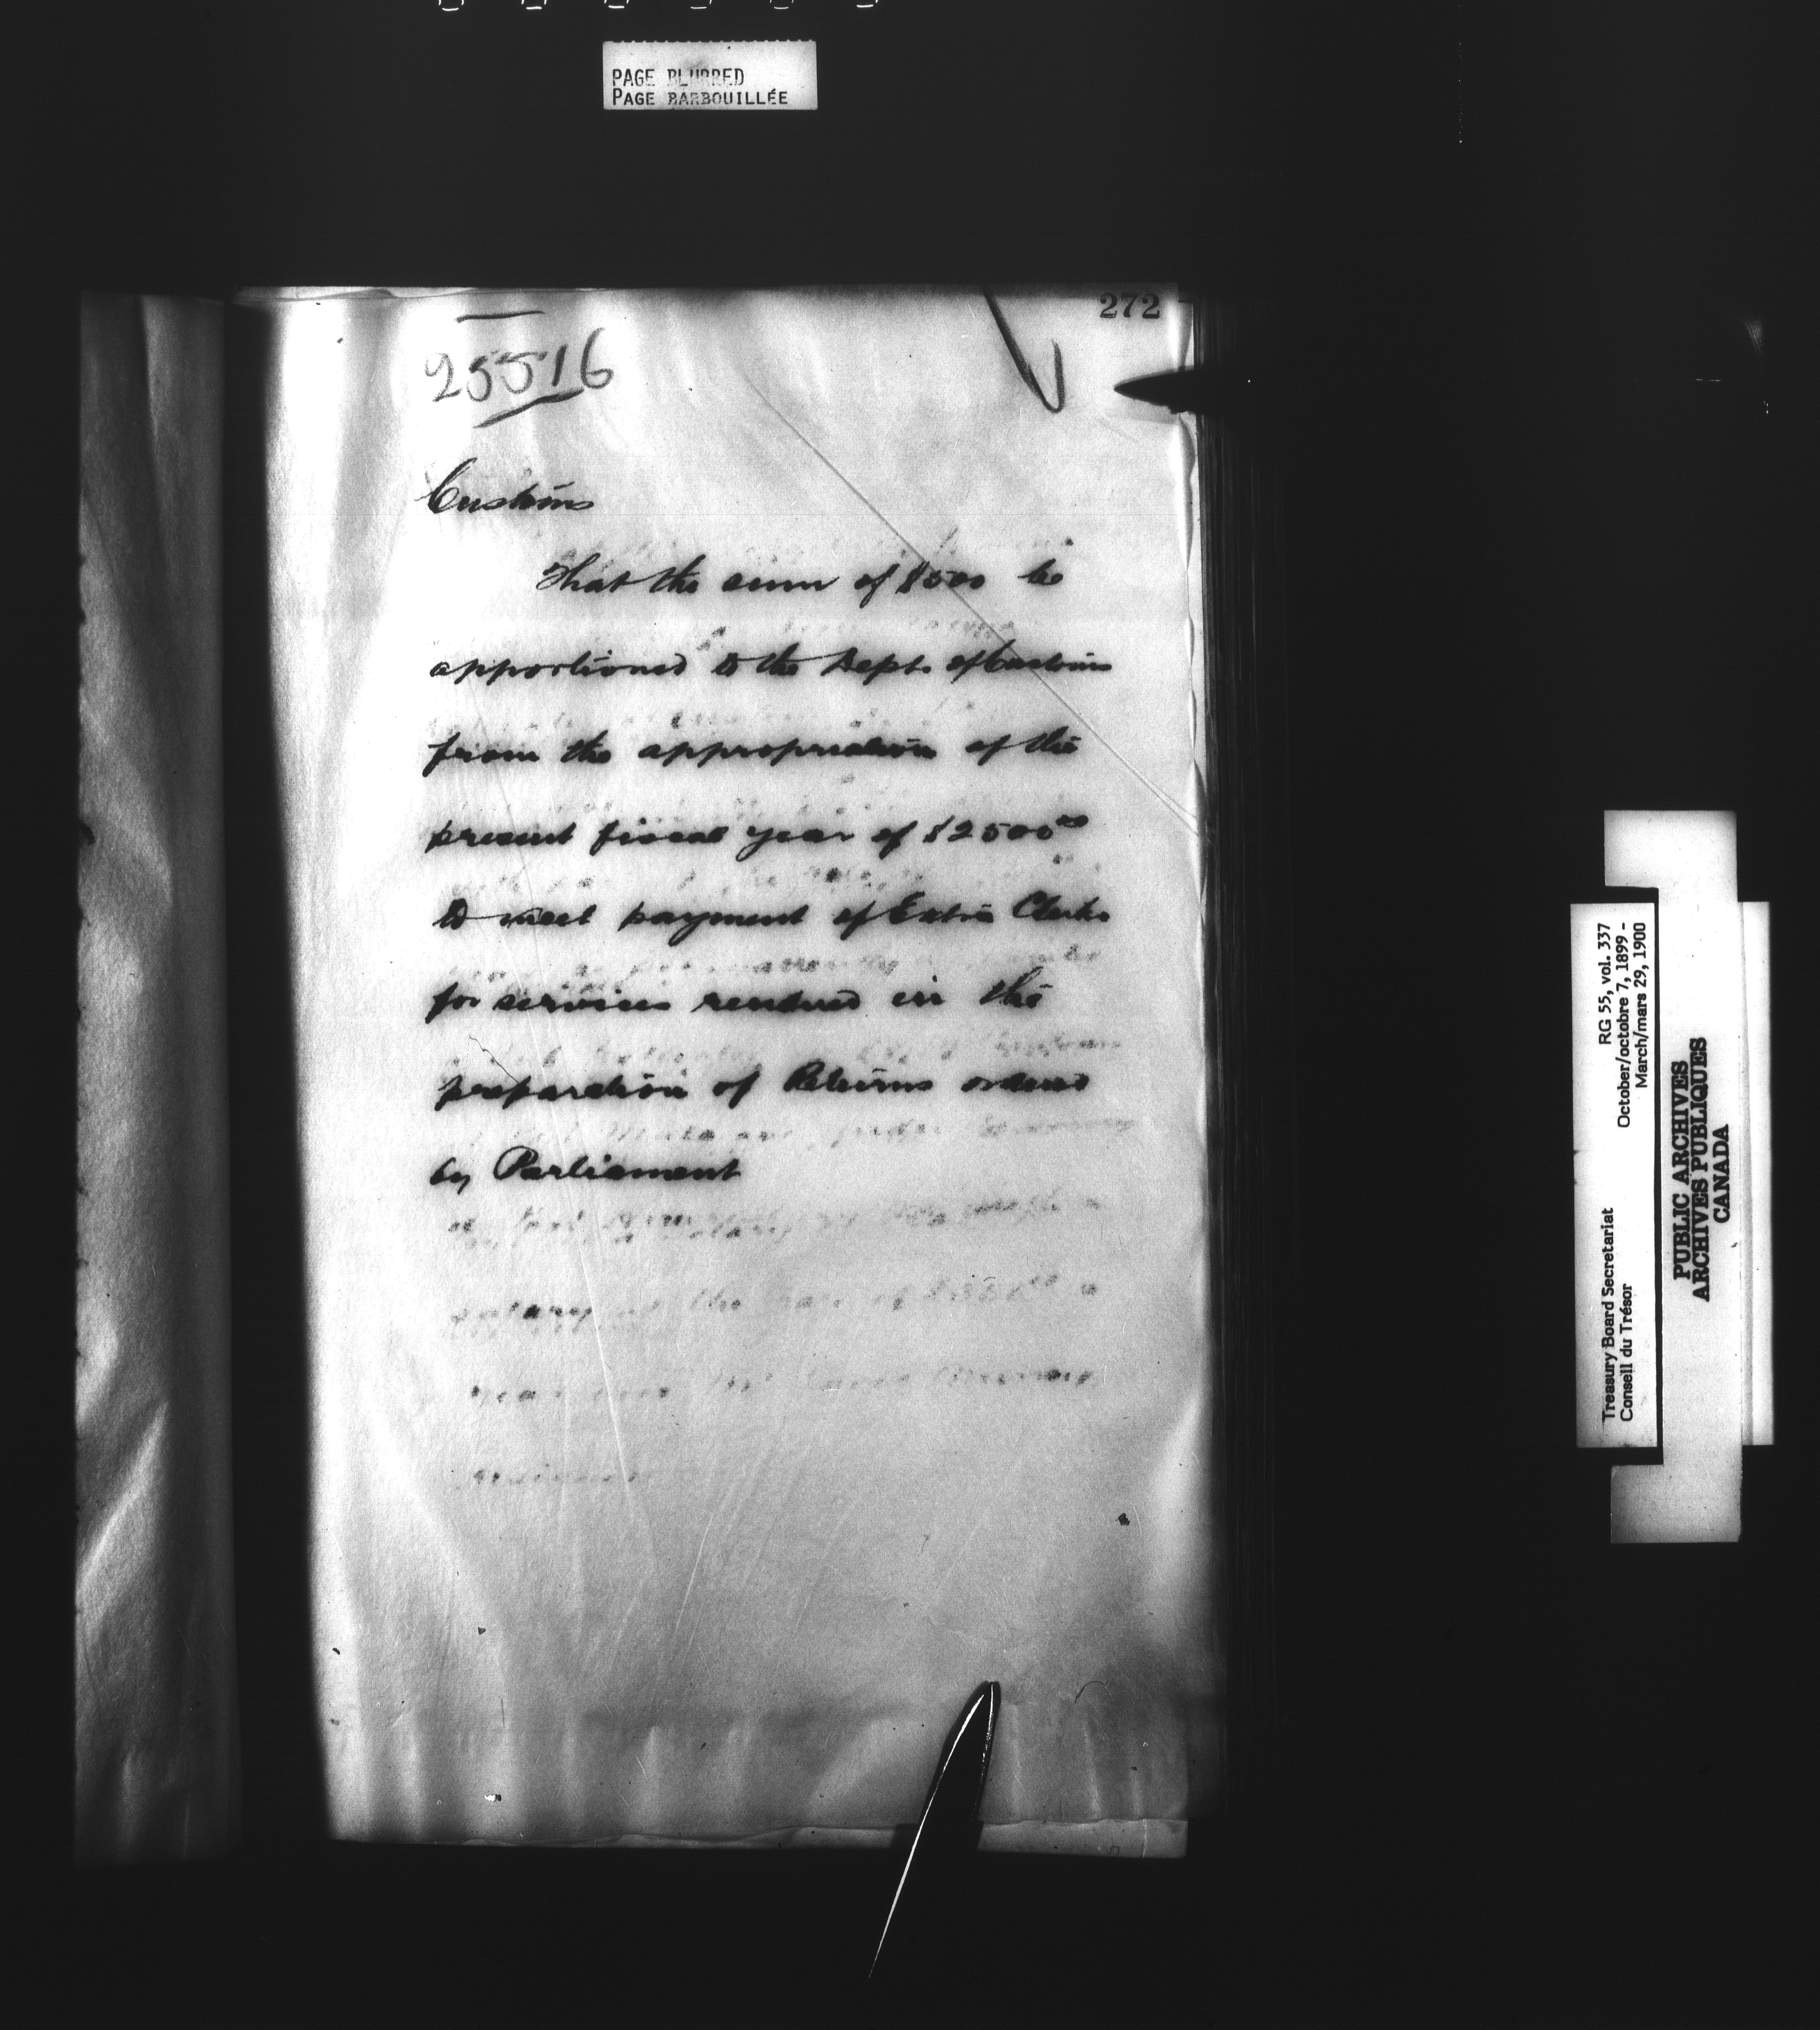 PAGE BLURRED
PAGE BARBOUILLÉE
272
25516
Customs
That the sum of $500 be
apportioned to the Dept. of Customs
from the appropriation of the
present fiscal year of $2500 00
to meet payment of Extra Clerks
for services rendered in the
preparation of Returns ordered
by Parliament
Treasury Board Secretariat RG 55, vol. 337
Conseil du Trésor October/octobre 7, 1899 -
March/mars 29, 1900
PUBLIC ARCHIVES
ARCHIVES PUBLIQUES
CANADA